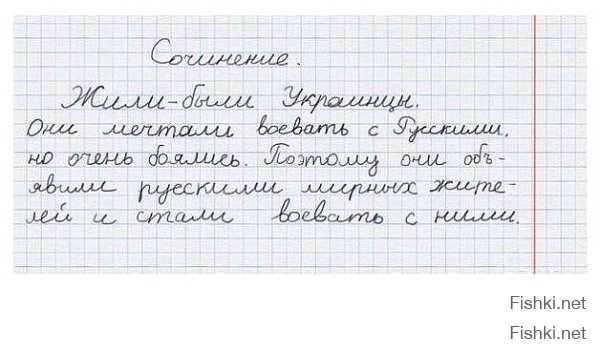 Сочинение.
Жили-были Украинцы.
Они мечтали воевать с Русскими,
но очень боялись. Поэтому они объ-
явили русскими мирных жите-
лей и стали воевать с ними.
Fishki.net
Fishki.net